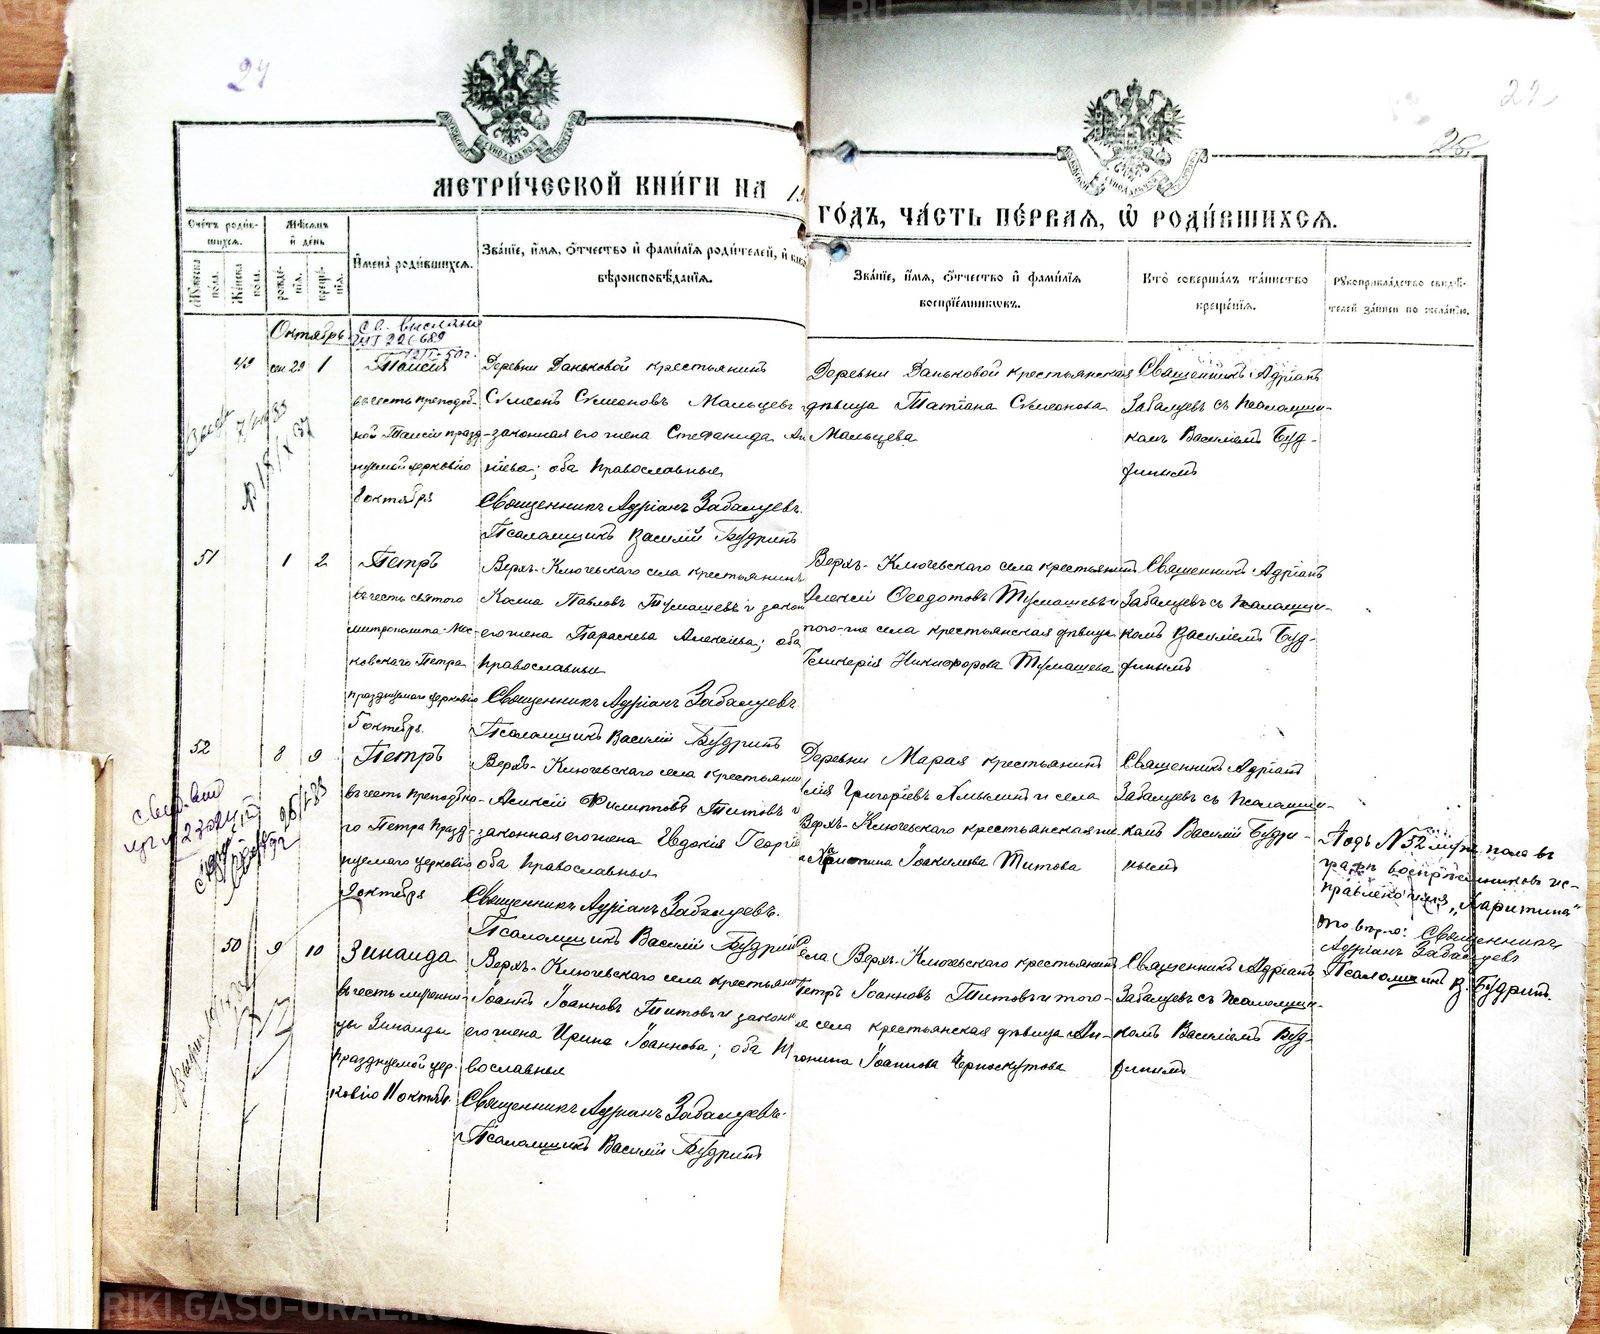 METRIKI.GASO-URAL.RU
METRIKI.GASO-URAL.RU
24
22
26
МЕТРИ́ЧЕСКОЙ КНИ́ГИ НА 19
ГО́ДЪ, ЧА́СТЬ ПЕ́РВАЯ, Ѡ҆ РОДИ́ВШИХСЯ.
Сче́тъ роди́вшихся.
Мѣсяцъ и҆ де́нь
И҆мена̀ роди́вшихся.
Зва́нїе, и҆́мя, ѻ҆́тчество и҆ фами́лїя роди́телей, и҆
вѣроисповѣ́данїя.
Зва́нїе, и҆́мя, ѻ҆́тчество и҆ фами́лїя
воспрїе́мниковъ.
Кто̀ соверша́лъ та́инство
креще́нїя.
Рꙋкоприкла́дство свидѣ́-
телей за́писи по жела́нїю.
Мꙋжеска пола.
Женска пола.
рожде-
нїя.
креще-
нїя.
Октябрь
49 сен 29 1 Таисія
въ честь преподоб-
ной Таисіи празд-
нуемой церковію
8 октября
Деревни Даньковой крестьянинъ
Сѵмеонъ Сѵмеоновъ Мальцевъ
законная его жена Стефанида
оба православные
Священникъ Адріанъ Забалуевъ.
Псаломщикъ Василій Будринъ
Деревни Даньковой крестьянская
дѣвица Татіана Сѵмеонова
Мальцева
Священникъ Адріанъ
Забалуевъ съ псаломщи-
комъ Василіемъ Буд-
ринымъ
51 1 2 Петръ
въ честь святого
митрополита Мос-
ковскаго Петра
празднуемаго церковію
5 октября.
Верхъ-Ключевскаго села крестьянинъ
Косма Павловъ Тумашевъ и закон
его жена Параскева Алексіева; оба
православные
Священникъ Адріанъ Забалуевъ
Псаломщикъ Василій Будринъ
Верхъ-Ключевскаго села крестьянинъ
Алексій Ѳеодотовъ Тумашевъ и
того-же села крестьянская дѣвица
Гликерія Никифорова Тумашева
Священникъ Адріанъ
Забалуевъ съ псаломщи-
комъ Василіемъ Буд-
ринымъ
52 8 9 Петръ
въ честь преподобна-
го Петра празд-
нуемаго церковію
9 октября
Верхъ-Ключевскаго села крестьянин
Алексій Филипповъ Титовъ и
законная его жена Евдокія Георгіе
оба православные
Священникъ Адріанъ Забалуевъ.
Псаломщикъ Василій Будринъ
Деревни Марая крестьянинъ
Григоріевъ и села
Верхъ-Ключевскаго крестьянская
Іоакимова Титова
Священникъ Адріанъ
Забалуевъ съ псаломщи-
комъ Василій Будри-
нымъ
Подъ № 52 муж. пола въ
графѣ воспріемниковъ ис-
правлено имя „Харитина"
Священникъ
Адріанъ Забалуевъ
Псаломщикъ В. Будринъ.
50 9 10 Зинаида
въ честь мучени-
цы Зинаиды
празднуемой цер-
ковію 11 октяб.
Верхъ-Ключевскаго села крестьянин
Іоаннъ Іоанновъ Титовъ и закон
его жена Ирина Іоаннова; оба пра
вославные
Священникъ Адріанъ Забалуевъ.
Псаломщикъ Василій Будринъ
Села Верхъ-Ключевскаго крестьянинъ
Петръ Іоанновъ Титовъ и того-
же села крестьянская дѣвица Ан-
тонина Іоаннова Черноскутова
Священникъ Адріанъ
Забалуевъ съ псаломщи-
комъ Василіемъ Буд-
ринымъ
METRIKI.GASO-URAL.RU